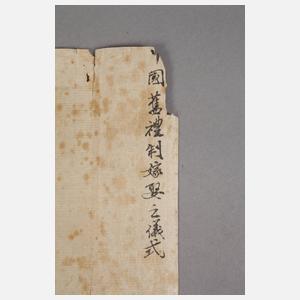 國舊禮制嫁娶之儀式